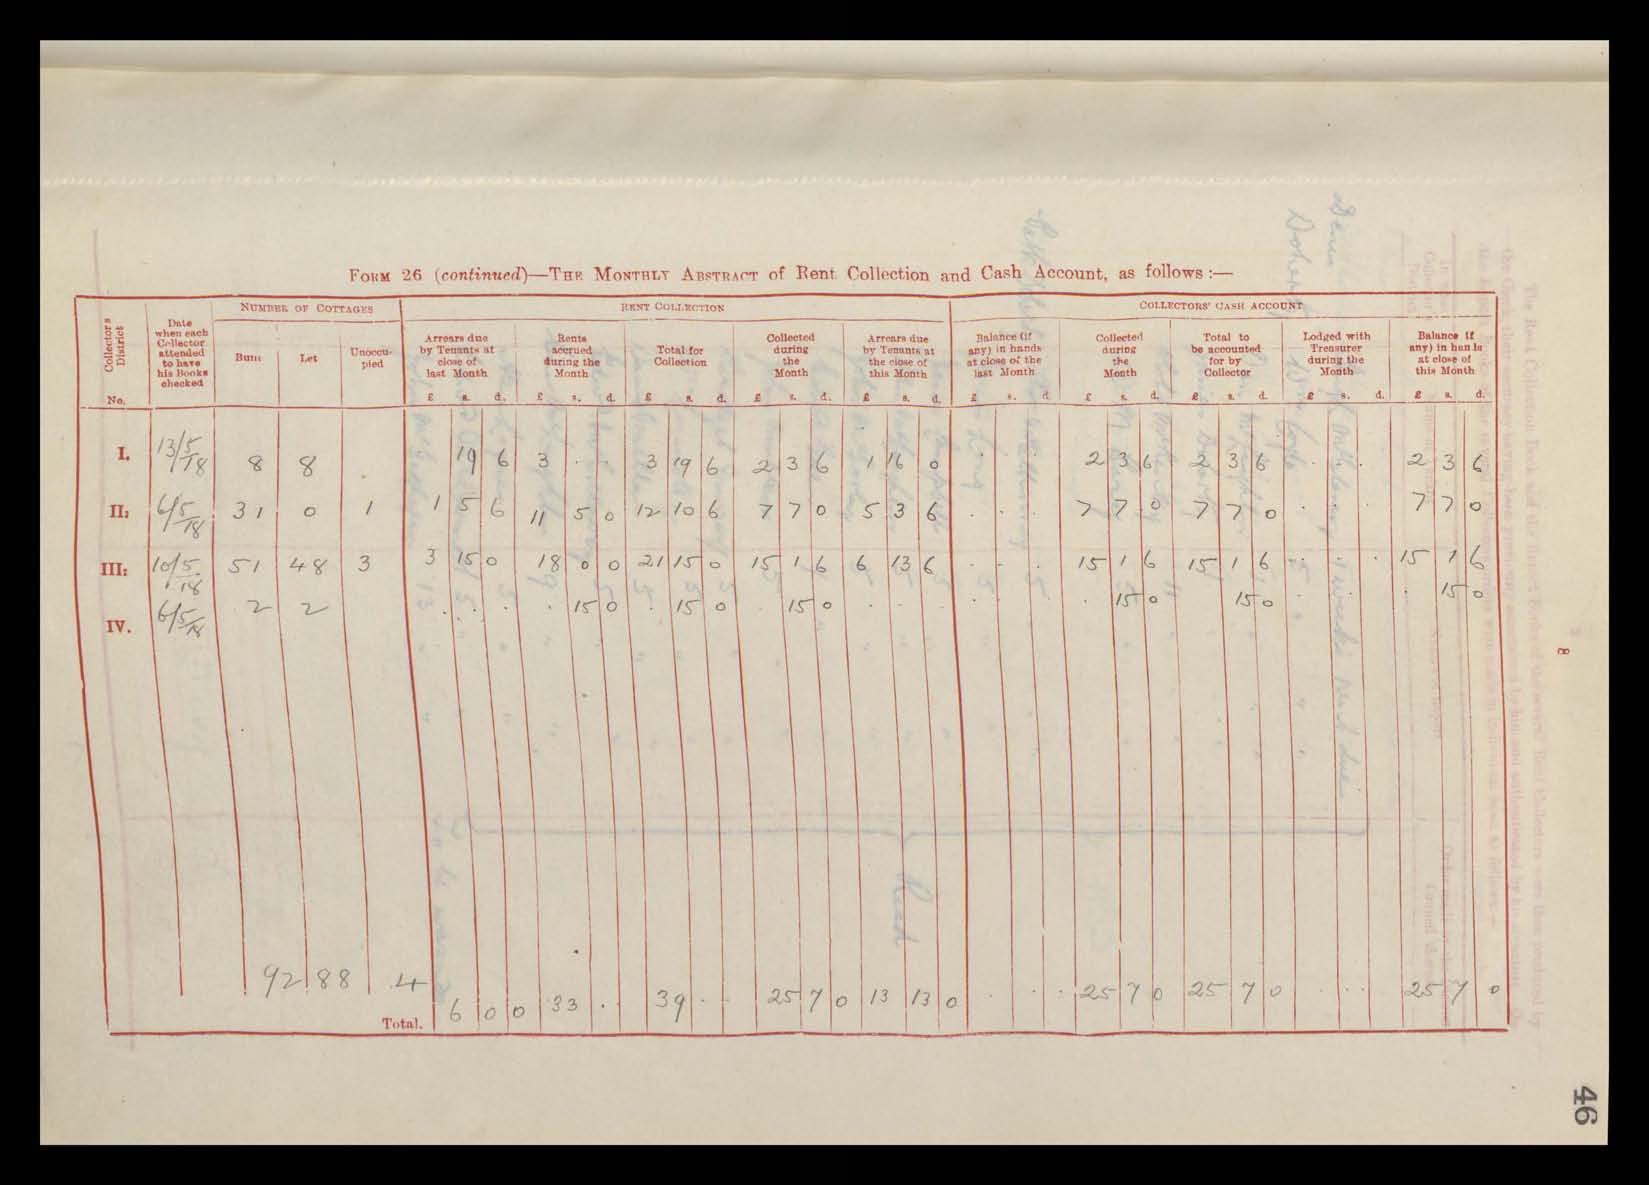 FORM 26 (continued)—THE MONTHLY ABSTRACT of Rent Collection and Cash Account, as follows :—
Collector's District No.
Date when each Collector attended to have his Books checked
NUMBER OF COTTAGES
RENT COLLECTION
COLLECTORS' CASH ACCOUNT
Built Let Unoccupied
Arrears due by Tenants at close of last Month
Rents accrued during the Month
Total for Collection
Collected during the Month
Arrears due by Tenants at the close of this Month
Balance (if any) in hands at close of the last Month
Collected during the Month
Total to be accounted for by Collector
Lodged with Treasurer during the Month
Balance if any) in hands at close of this Month
£ s. d. £ s. d. £ s. d. £ s. d. £ s. d. £ s. d. £ s. d. £ s. d. £ s. d. £ s. d.
I. 13/5/18 8 8 . 19 6 3 . . 3 19 6 2 3 6 1 16 0 . . . 2 3 6 2 3 6 . . . 2 3 6
II. 6/5/18 31 0 1 1 5 6 11 5 0 12 10 6 7 7 0 5 3 6 . . . 7 7 0 7 7 0 . . . 7 7 0
III. 10/5/18 51 48 3 3 15 0 18 0 0 21 15 0 15 1 6 6 13 6 . . . 15 1 6 15 1 6 . . . 15 1 6
IV. 6/5/18 2 2 . . . . 15 0 . 15 0 . 15 0 . . . . . . . 15 0 15 0 . . . . 15 0
92 88 4
Total. 6 0 0 33 . . 39 . . 25 7 0 13 13 0 . . . 25 7 0 25 7 0 . . . 25 7 0
8
46